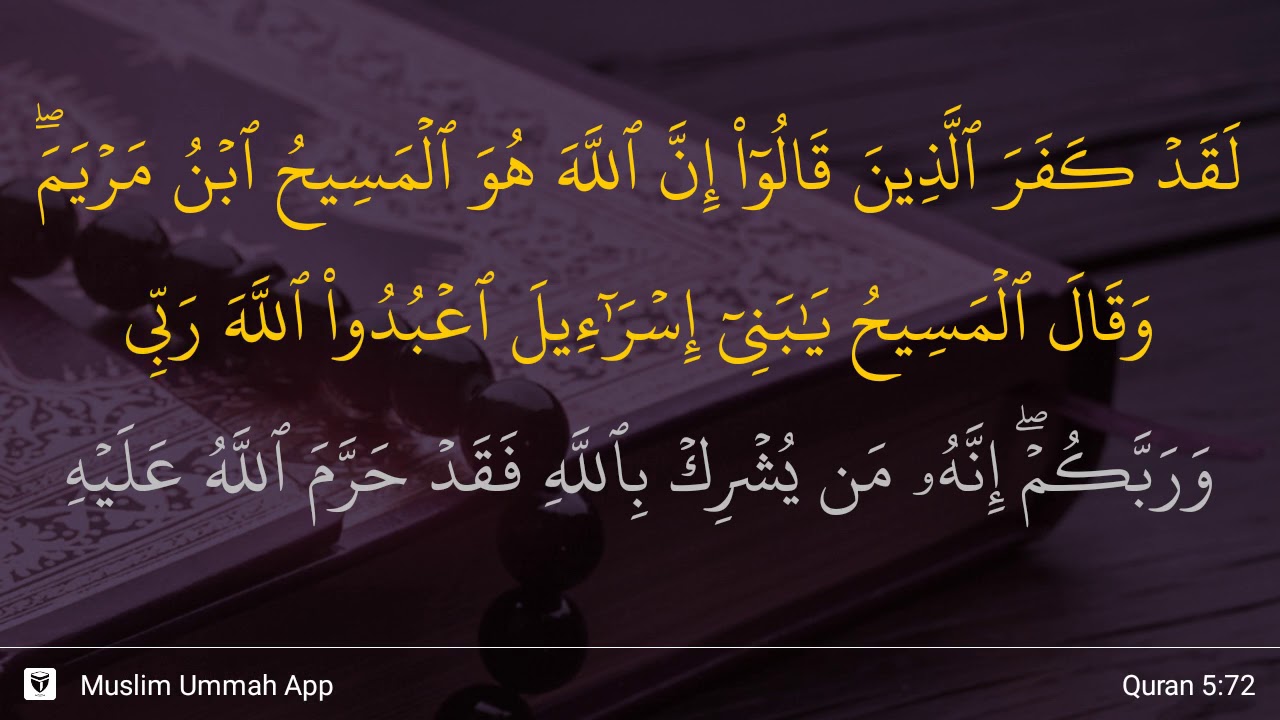 لَقَدۡ كَفَرَ ٱلَّذِينَ قَالُوٓاْ إِنَّ ٱللَّهَ هُوَ ٱلۡمَسِيحُ ٱبۡنُ مَرۡيَمَۖ
وَقَالَ ٱلۡمَسِيحُ يَٰبَنِيٓ إِسۡرَٰٓءِيلَ ٱعۡبُدُواْ ٱللَّهَ رَبِّي
وَرَبَّكُمۡۖ إِنَّهُۥ مَن يُشۡرِكۡ بِٱللَّهِ فَقَدۡ حَرَّمَ ٱللَّهُ عَلَيۡهِ
Muslim Ummah App
Quran 5:72